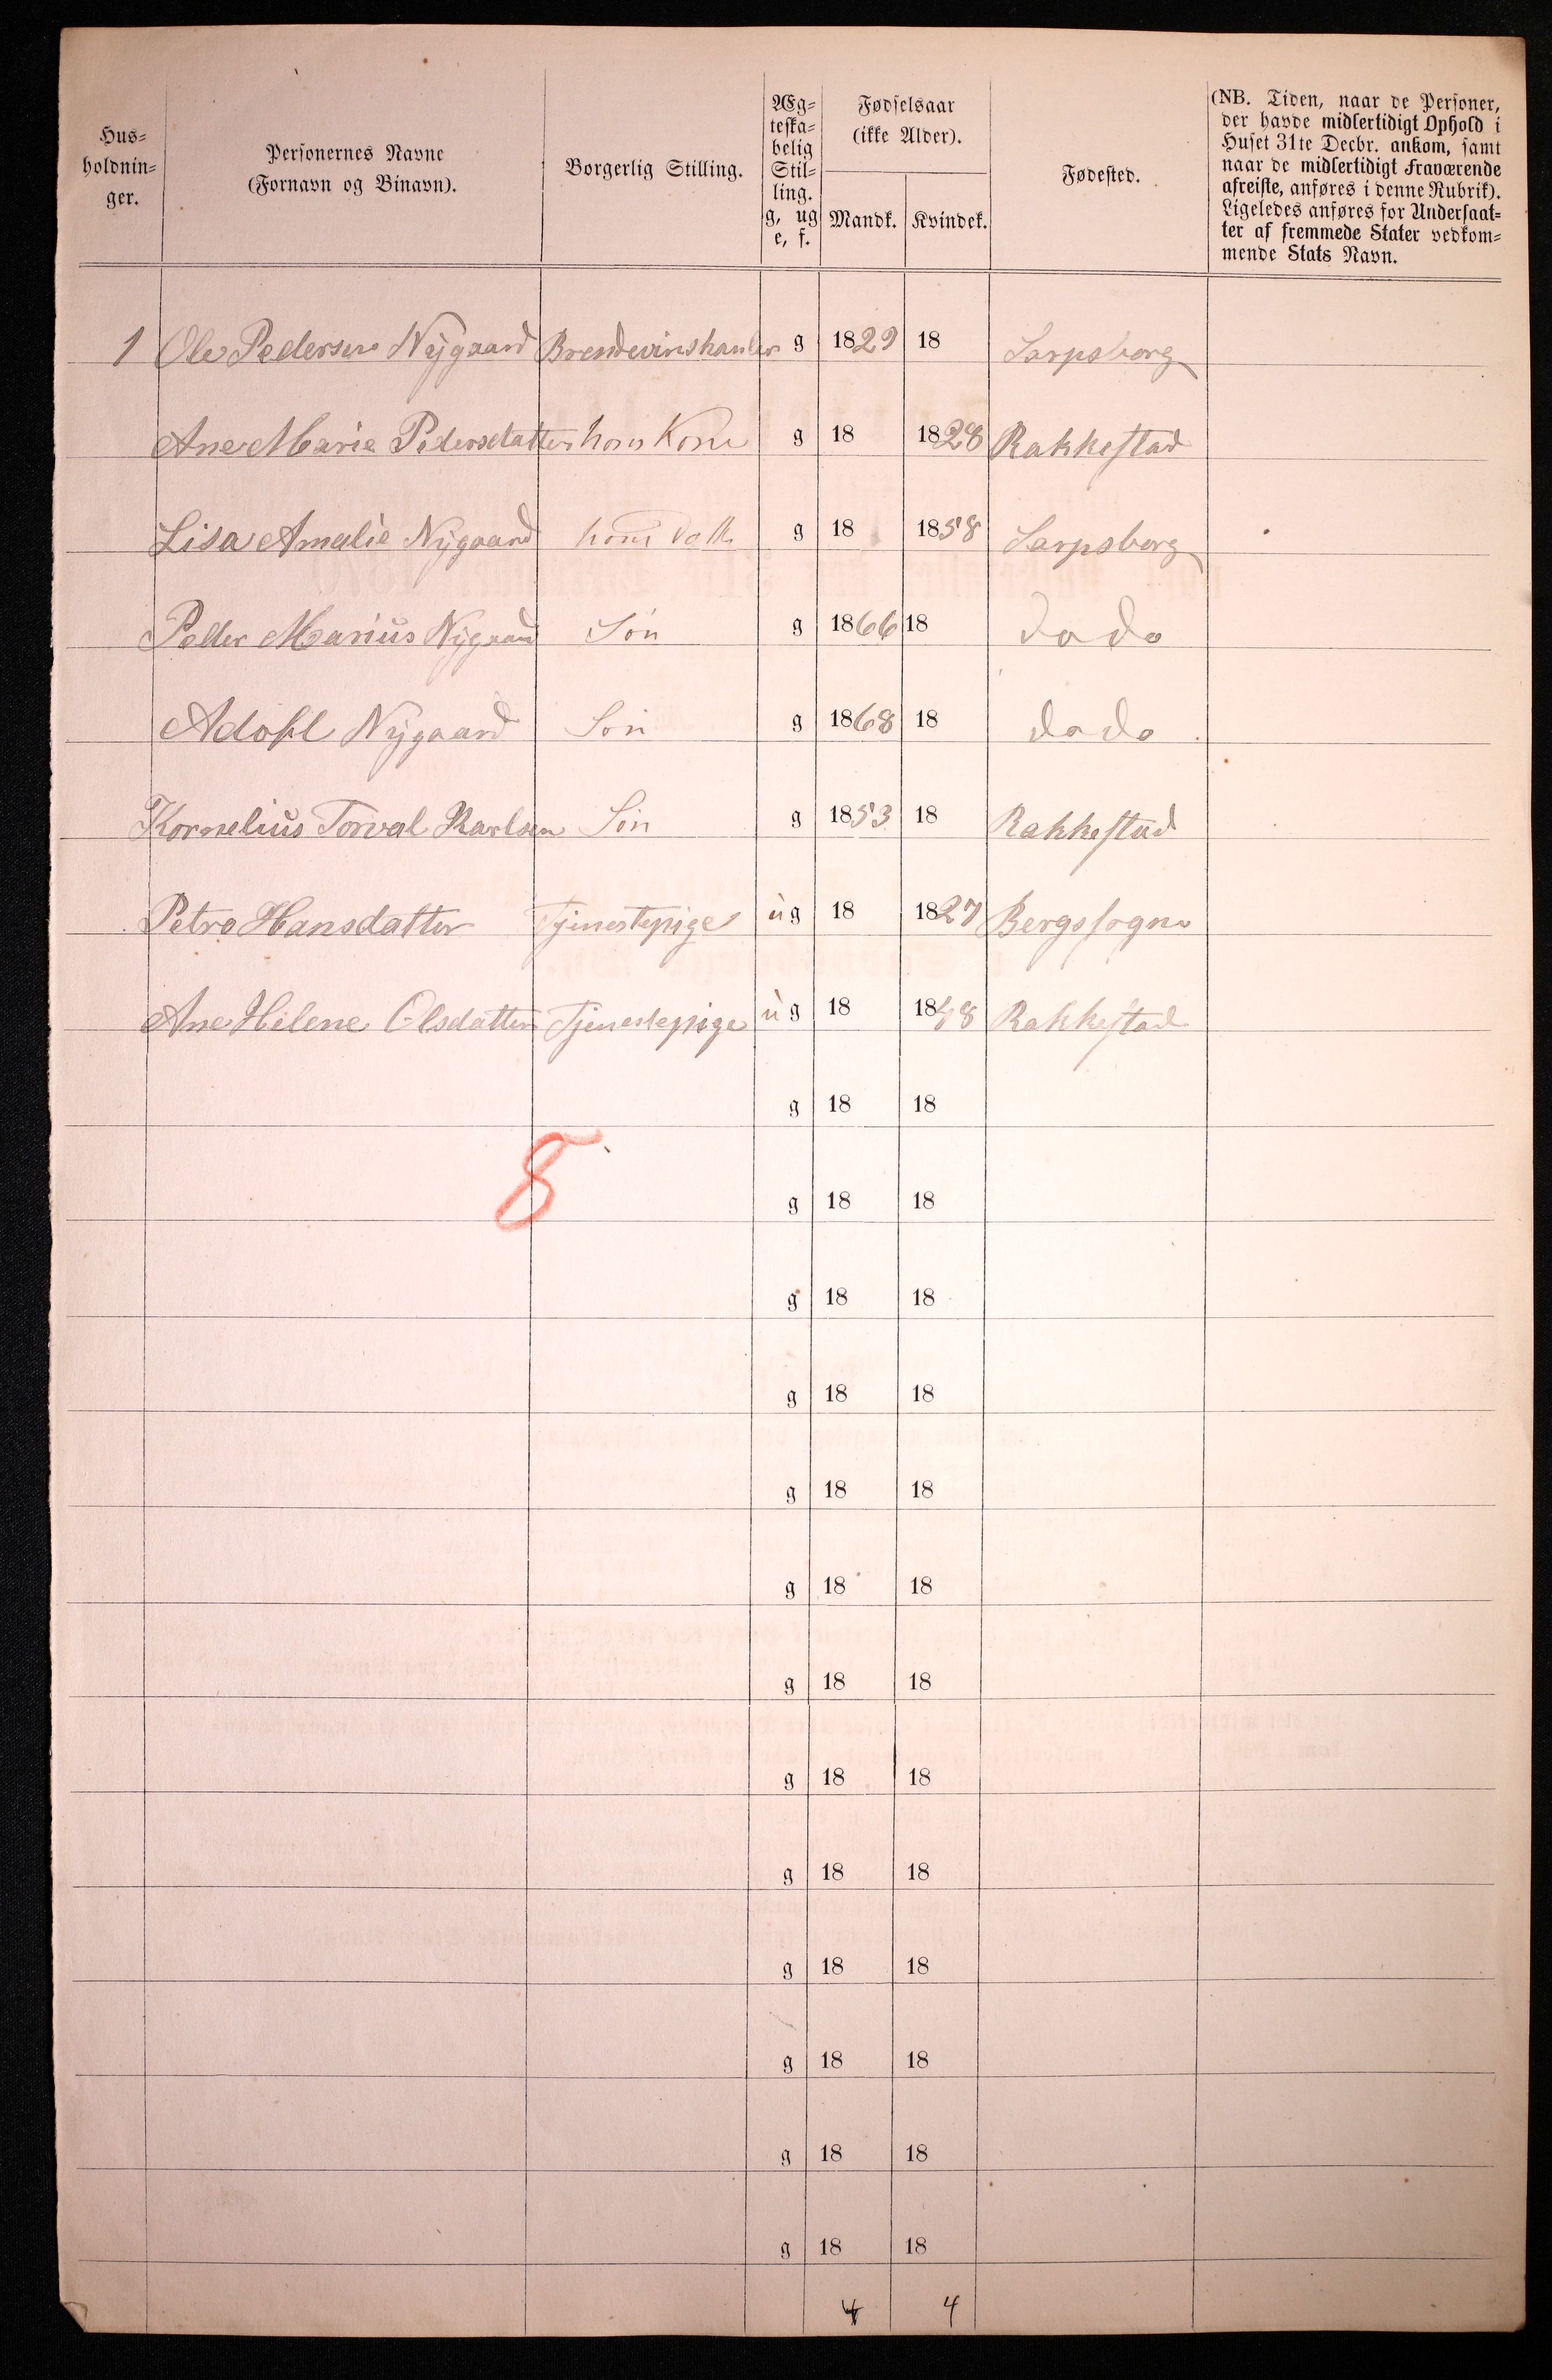 Hus=
holdnin=
ger.
Personernes Navne
(Fornavn og Binavn).
Borgerlig Stilling.
Æg=
teska=
belig
Stil=
ling.
g, ug
e, f.
Fødselsaar
(ikke Alder).
Mandk. Kvindek.
Fødested.
(NB. Tiden, naar de Personer,
der havde midlertidigt Ophold i
Huset 31te Decbr. ankom, samt
naar de midlertidigt Fraværende
afreiste, anføres i denne Rubrik).
Ligeledes anføres for Undersaat=
ter af fremmede Stater vedkom=
mende Stats Navn.
1 Ole Pedersen Nÿgaard Brendevinshanler g 1829 18 Sarpsborg
Ane Marie Pedersdatter hans Kone g 18 1828 Rakkestad
Lisa Amalie Nÿgaard hans Datt. g 18 1858 Sarpsborg
Peder Marius Nÿgaard Søn g 1866 18 do do
Adofl Nÿgaard Søn g 1868 18 do do
Kornelius Torval Karlsen Søn g 1853 18 Rakkestad
Petra Hansdatter Tjenestepige ug 18 1827 Bergssogn
Ane Helene Olsdatter Tjenestepige ug 18 1848 Rakkestad
g 18 18
8
g 18 18
g 18 18
g 18 18
g 18 18
g 18 18
g 18 18
g 18 18
g 18 18
g 18 18
g 18 18
g 18 18
g 18 18
4 4